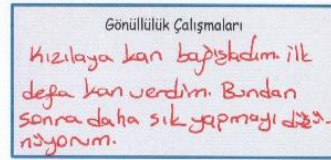 Gönüllülük Çalışmaları
Kızılaya kan bağışladım. ilk
defa kan verdim. Bundan
sonra daha sık yapmayı düşü-
nüyorum.